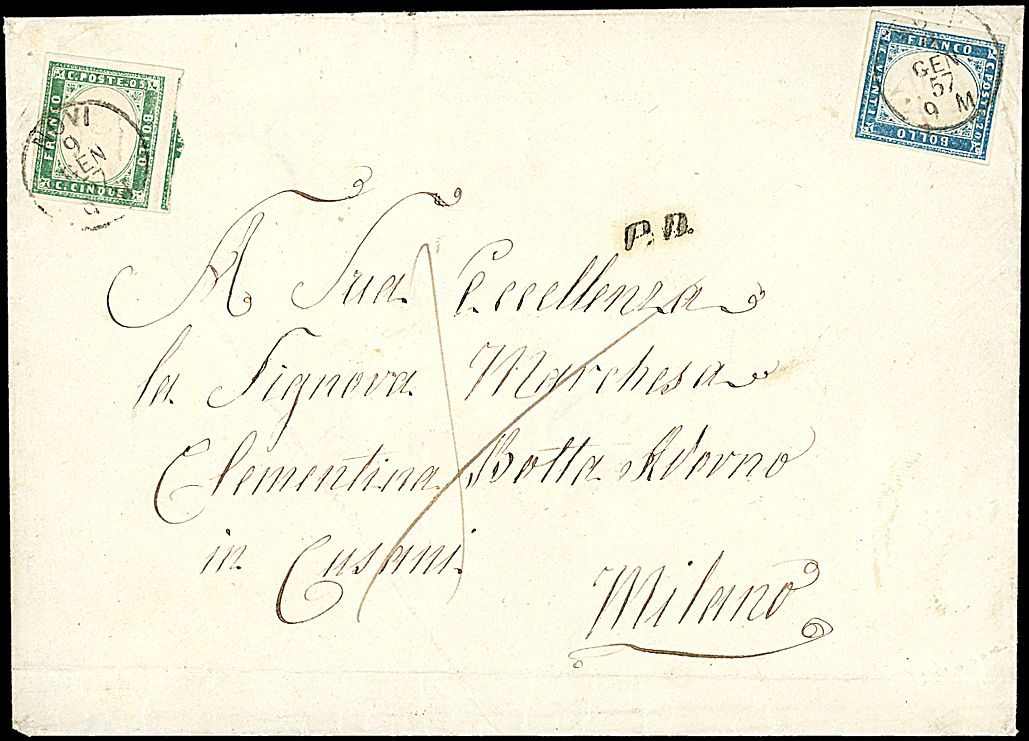 C. POSTE. 05
BOLLO
C. CINQUE
FRANCO
NOVI
9
GEN
57
FRANCO
C. POSTE 20
BOLLO
C. VENTI
GEN
57
9 M
P. D.
A Sua Eccellenza
la Signora Marchesa
Clementina Botta Adorno
in Cusani
Milano